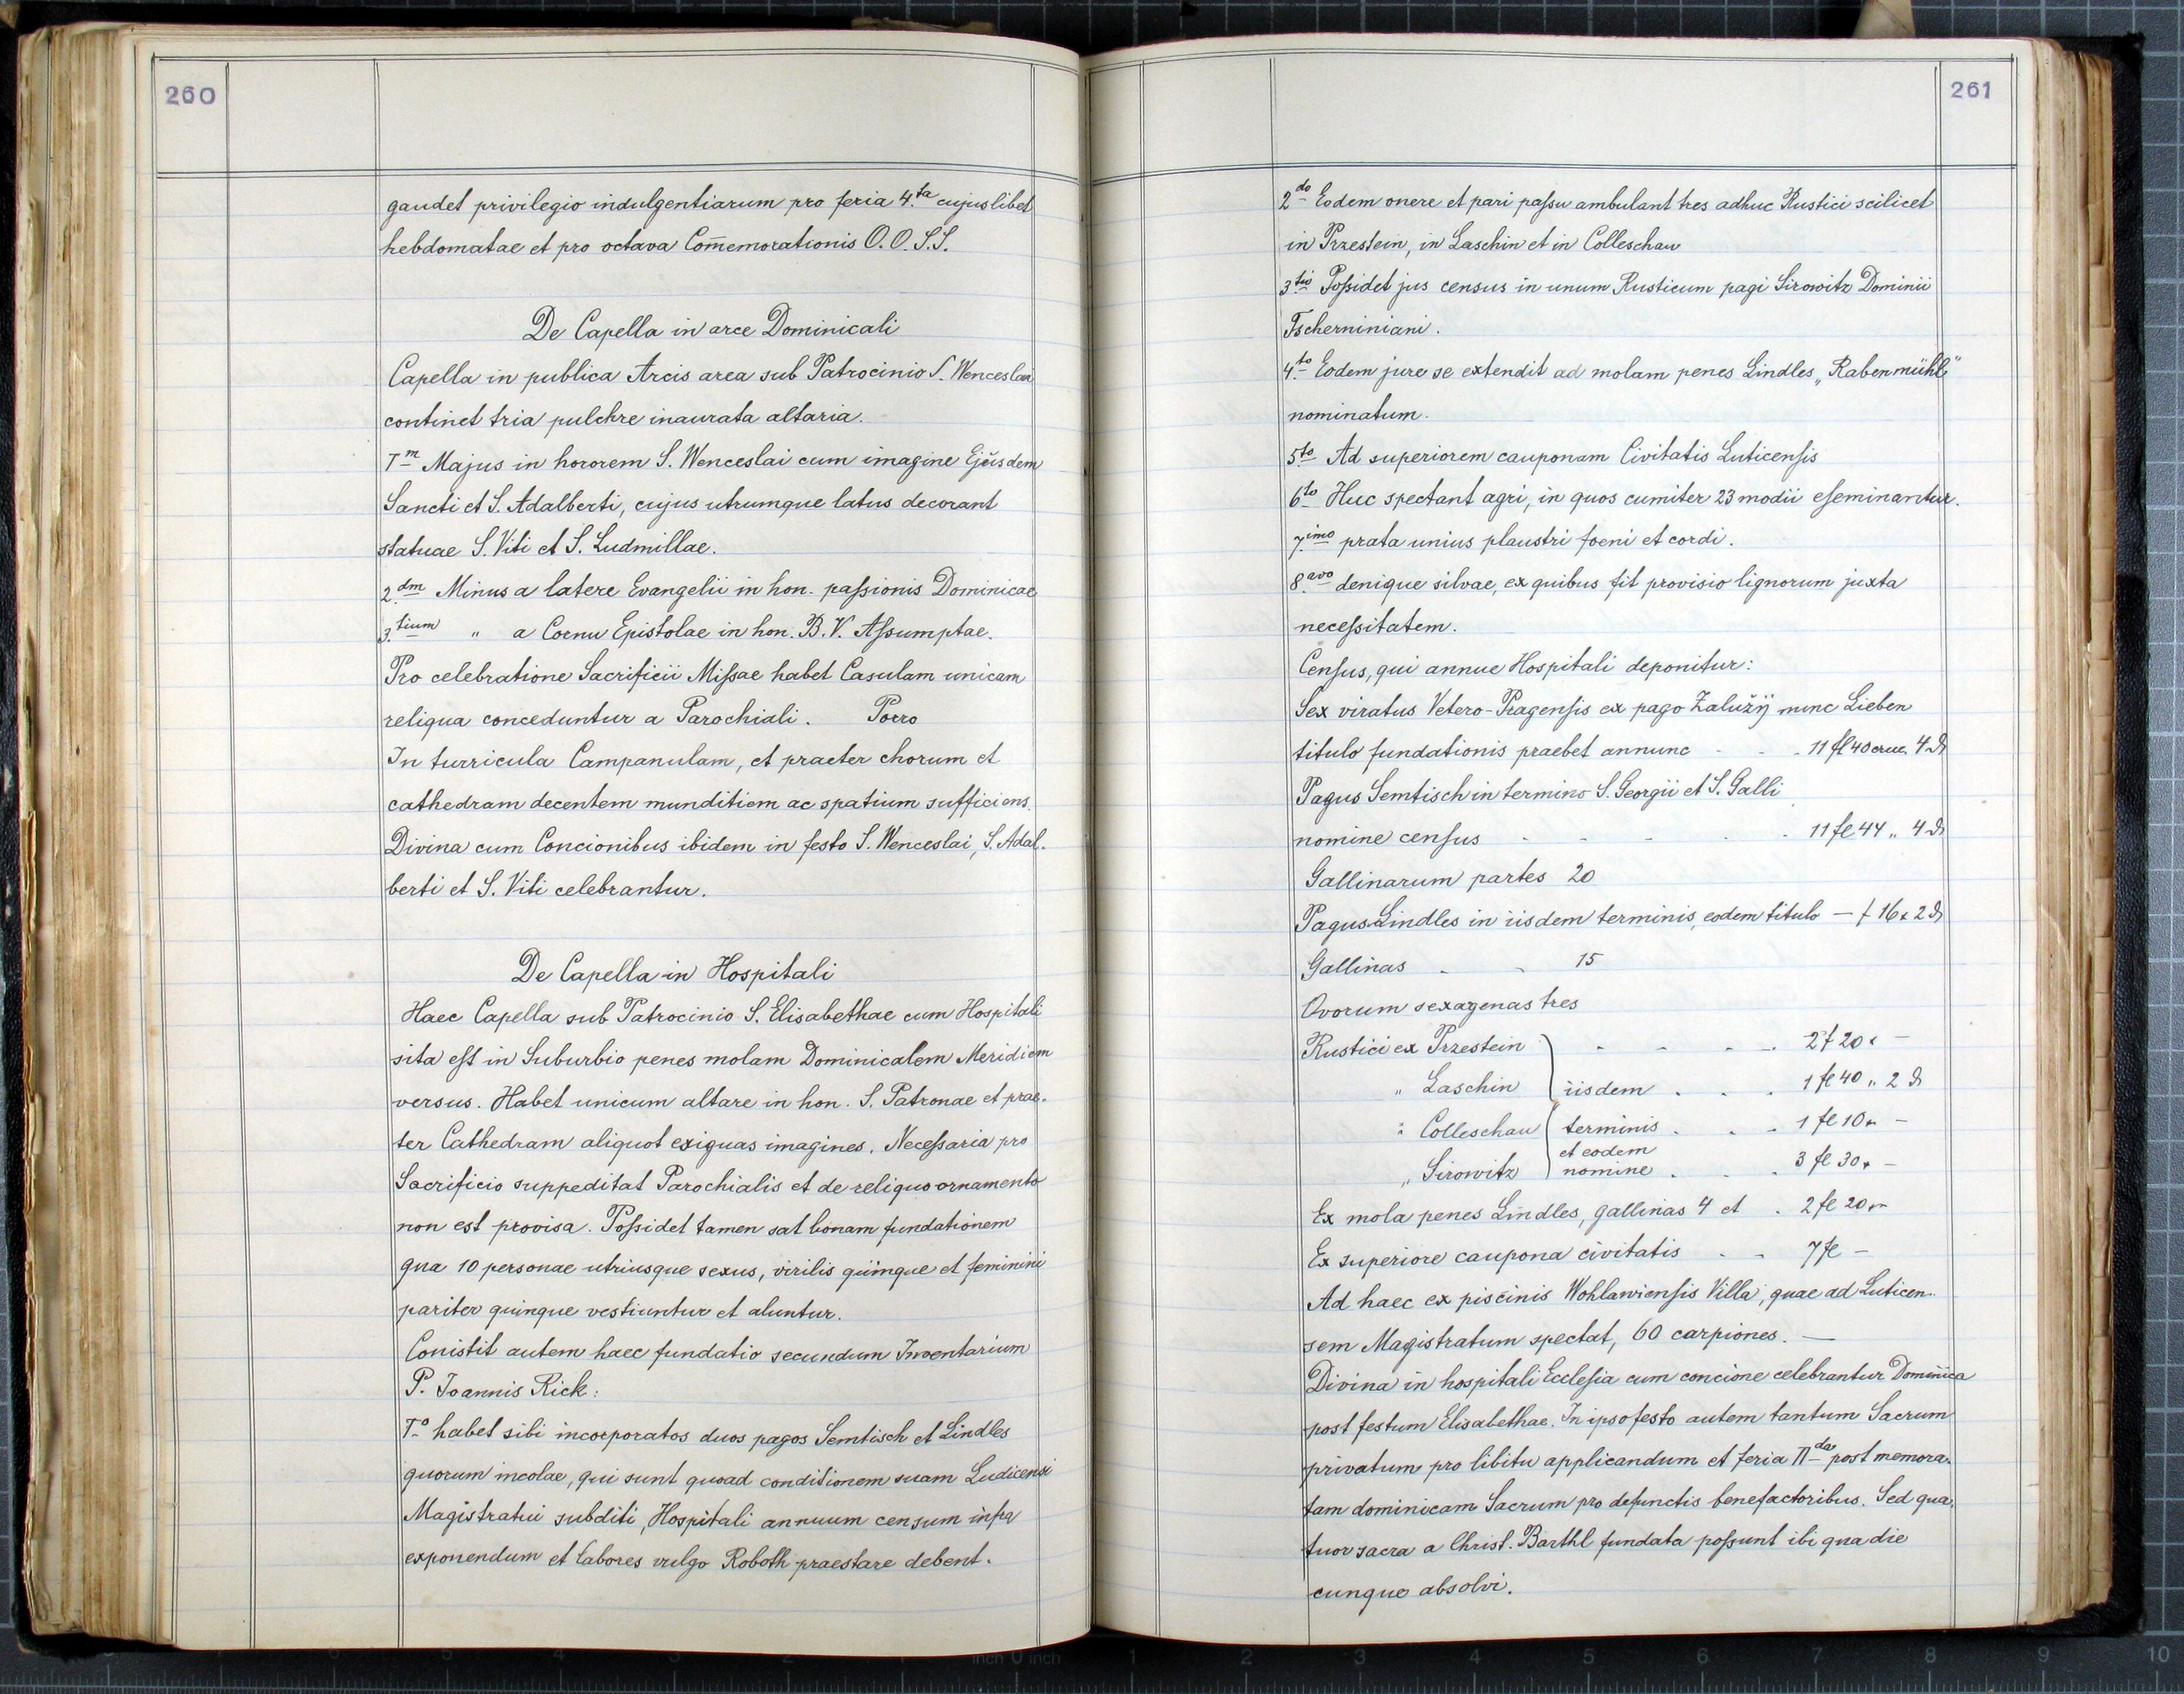 260
gaudet privilegio indulgentiarum pro feria 4.ta cujuslibet
hebdomatae et pro octava Com̄emorationis O.O.S.S.
De Capella in arce Dominicali
Capella in publica Arcis area sub Patrocinio S. Wenceslai
continet tria pulchre inaurata altaria.
Im Majus in hororem S. Wenceslai cum imagine Ejusdem
Sancti et S. Adalberti, cujus utrumque latus decorant
statuae S. Viti et S. Ludmillae.
2.dm Minus a latere Evangelii in hon. paſsionis Dominicae
3.tium " a Cornu Epistolae in hon. B.V. Aſsumptae.
Pro celebratione Sacrificii Miſsae habet Casulam unicam
reliqua conceduntur a Parochiali. Porro
In turricula Campanulam, et praeter chorum et
cathedram decentem munditiem ac spatium sufficiens.
Divina cum Concionibus ibidem in festo S. Wenceslai, S. Adal-
berti et S. Viti celebrantur.
De Capella in Hospitali
Haec Capella sub Patrocinio S. Elisabethae cum Hospitali
sita eſt in Suburbio penes molam Dominicalem Meridiem
versus. Habet unicum altare in hon. S. Patronae et prae-
ter Cathedram aliquot exiguas imagines. Neceſsaria pro
Sacrificio suppeditat Parochialis et de reliquo ornamento
non est provisa. Poſsidet tamen sat bonam fundationem
qua 10 personae utriusque sexus, virilis quinque et feminini
pariter quinque vestiuntur et aluntur.
Conistit autem haec fundatio secundum Inventarium
P. Joannis Rick:
Io habet sibi incorporatos duos pagos Semtisch et Lindles
quorum incolae, qui sunt quoad conditionem suam Ludicensi
Magistratui subditi, Hospitali annuum censum infra
exponendum et labores vulgo Roboth praestare debent.
261
2do Eodem onere et pari paſsu ambulant tres adhuc Rustici scilicet
in Przestein, in Laschin et in Colleschau
3tio Poſsidet jus census in unum Rusticum pagi Sirowitz Dominii
Tscherniniani.
4.to Eodem jure se extendit ad molam penes Lindles „Rabenmühl"
nominatum.
5to Ad superiorem cauponam Civitatis Luticenſis
6to Huc spectant agri, in quos cumiter 23 modii eſeminantur.
7.imo prata unius plaustri foeni et cordi.
8.avo denique silvae, ex quibus fit provisio lignorum juxta
neceſsitatem.
Cenſus, qui annue Hospitali deponitur:
Sex viratus Vetero-Pragenſis ex pago Zalužÿ nunc Lieben
titulo fundationis praebet annunc - - 11 fl 40 cruc. 4 ₰
Pagus Semtisch in termino S. Georgii et S. Galli
nomine cenſus - - - - 11 fl 44 „ 4 ₰
Gallinarum partes 20
Pagus Lindles in iisdem terminis, eodem titulo — f 16 x 2 ₰
Gallinas - - 15
Ovorum sexagenas tres
Rustici ex Przestein - - - - 2 f 20 x -
„ Laschin iisdem . . . 1 fl 40 „ 2 ₰
" Colleschau terminis . . . 1 fl 10 x -
et eodem
„ Sirowitz nomine . . . 3 fl 30 x -
Ex mola penes Lindles, gallinas 4 et . 2 fl 20 x -
Ex superiore caupona civitatis - - 7 fl -
Ad haec ex piscinis Wohlawienſis Villa, quae ad Luticen-
sem Magistratum spectat, 60 carpiones. —
Divina in hospitali Eccleſia cum concione celebrantur Dominica
post festum Elisabethae. In ipso festo autem tantum Sacrum
privatum pro libitu applicandum et feria IIda post memora-
tam dominicam Sacrum pro defunctis benefactoribus. Sed qua-
tuor sacra a Christ. Barthl fundata poſsunt ibi qua die
cunque absolvi.
inch 0 inch
1 2 3 4 5 6 7 8 9 10